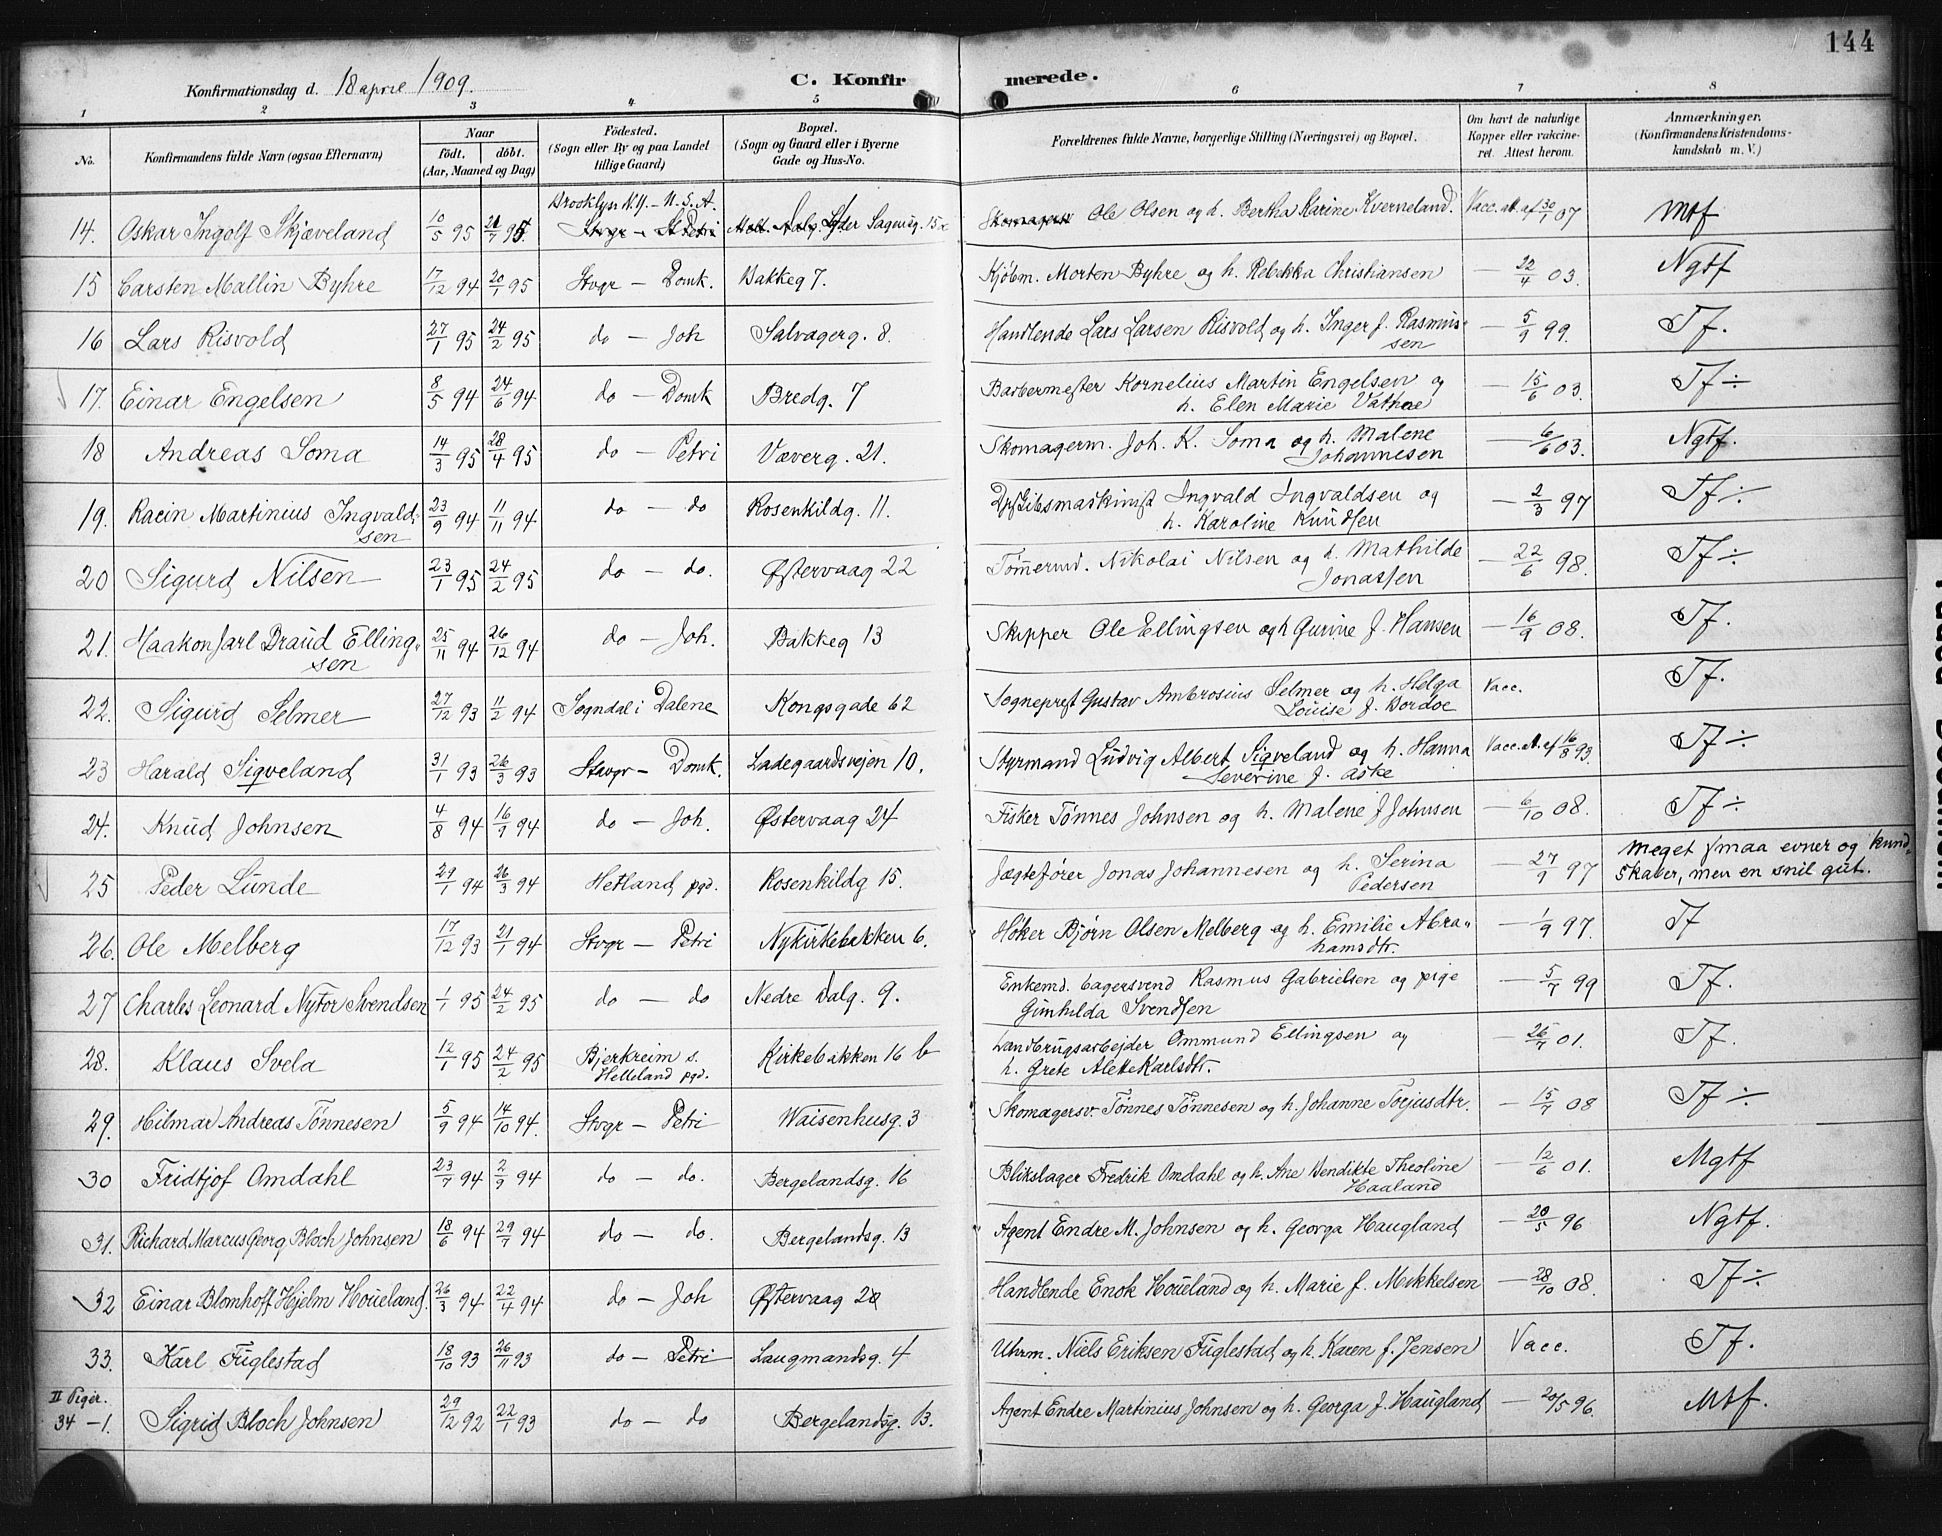 144
Konfirmationsdag d. 18 april 1909. C. Konfirmerede.
1 2 3 4 5 6 7 8
No. Konfirmandens fulde Navn (ogsaa Efternavn) Naar født. døbt. (Aar, Maaned og Dag) Fødested. (Sogn eller By og paa Landet tillige Gaard) Bopæl. (Sogn og Gaard eller i Byerne Gade og Hus-No. Forældrenes fulde Navne, borgerlige Stilling (Næringsvei) og Bopæl. Om havt de naturlige Kopper eller vakcineret. Attest herom. Anmærkninger. (Konfirmandens Kristendomskundskab m. V.)
14. Oskar Ingolf Skjæveland 10/5 95 21/7 95. Brooklyn N.Y. – U.S.A. Stvgr – St Petri Øster Sagensg. 15 Skomagersv Ole Olsen og h. Bertha Karine Kverneland. Vacc. att. af 30/1 07 Mtf
15 Carsten Mallin Byhre 17/12 94 20/1 95 Stvgr – Domk. Bakkeg 7. Kjøbm. Morten Byhre og h. Rebekka Christiansen – 22/4 03. Ngtf
16 Lars Risvold 27/1 95 24/2 95 do – Joh Salvagerg. 8. Handlende Lars Larsen Risvold og h. Inger f. Rasmussen – 5/9 99. Tf.
17. Einar Engelsen 8/5 94 24/6 94 do – Domk Bredg. 7 Barbermester Kornelius Martin Engelsen og h. Elen Marie Vathne – 15/6 03. Tf ÷
18 Andreas Soma 14/3 95 28/4 95 do – Petri Væverg. 21. Skomagerm. Joh. K. Soma og h. Malene Johannesen – 6/6 03. Ngtf.
19. Racin Martinius Ingvaldsen 23/9 94 11/11 94 do – do Rosenkildg. 11. Ingvald Ingvaldsen og h. Karoline Knudsen – 2/3 97 Tf ÷
20 Sigurd Nilsen 23/1 95 24/2 95 do – do. Østervaag 22 Tømermd. Nikolai Nilsen og h. Mathilde Jonassen – 22/6 98. Tf ÷
21. Haakon Jarl Braud Ellingsen 25/11 94 26/12 94 do – Joh. Bakkeg 13 Skipper Ole Ellingsen og h Gurine f. Hansen – 16/9 08. Tf.
22. Sigurd Selmer 27/12 93 11/2 94 Sogndal i Dalene Kongsgade 62 Sogneprest Gustav Ambrosius Selmer og h. Helga Louise f. Bordoe Vacc. Tf.
23 Harald Sigveland 31/1 93 26/3 93 Stavgr – Domk. Ladegaardsvejen 10. Styrmand Ludvig Albert Sigveland og h. Hanna Severine f. Aske Vacc. at. af 16/8 93. Tf ÷
24. Knud Johnsen 4/8 94 16/9 94 do – Joh. Østervaag 24 Fisker Tønnes Johnsen og h. Malene f Johnsen – 6/10 08. Tf ÷
25 Peder Lunde 29/1 94 26/3 94 Hetland pgd. Rosenkildg 15. Jægtefører Jonas Johannesen og h. Serina Pedersen – 27/9 97 Meget smaa evner og kundskaber, men en snil gut.
26. Ole Melberg 17/12 93 21/1 94 Stvgr – Petri Nykirkebakken 6. Høker Bjørn Olsen Melberg og h. Emilie Abrahamsdtr. – 1/9 97. Tf
27 Charles Leonard Nytor Svendsen 1/1 95 24/2 95 do – do Nedre Dalg. 9. Enkemd. bagersvend Rasmus Gabrielsen og pige Gunhilda Svendsen – 5/7 99 Tf.
28. Klaus Svela 12/1 95 24/2 95 Bjerkreim s. Helleland pgd. Kirkebakken 16 b Landbrugsarbejder Ommund Ellingsen og h. Grete Alette Karlsdtr. – 26/7 01. Tf.
29. Hilmar Andreas Tønnesen 5/9 94 14/10 94. Stvgr – Petri Waisenhusg. 3 Skomagersv. Tønnes Tønnesen og h. Johanne Torjusdtr. – 15/7 08 Tf ÷
30 Fridtjof Omdahl 23/7 94 2/9 94 do – do. Bergelandsg. 16 Blikslager Fredrik Omdahl og h. Ane Vendikte Theoline Haaland – 12/6 01. Mgtf
31. Richard Marcus Georg Bloch Johnsen 18/6 94 29/7 94 do – do. Bergelandsg. 13 Agent Endre M. Johnsen og h. Georga Haugland – 20/5 96 Ngtf.
32 Einar Blomhoff Hjelm Houeland. 26/3 94 22/4 94 do – Joh Østervaag 20 Handlende Enok Houeland og h. Marie f. Mikkelsen – 28/10 08. Tf ÷
33. Karl Fuglestad 18/10 93 26/11 93 do – Petri Laugmandsg. 4 Uhrm. Niels Eriksen Fuglestad og h. Karen f. Jensen Vacc. Tf.
II Piger.
34 – 1. Sigrid Bloch Johnsen 29/12 92 22/1 93 do – do Bergelandsg. 13. Agent Endre Martinius Johnsen og h. Georga f. Haugland – 20/5 96. Mtf.